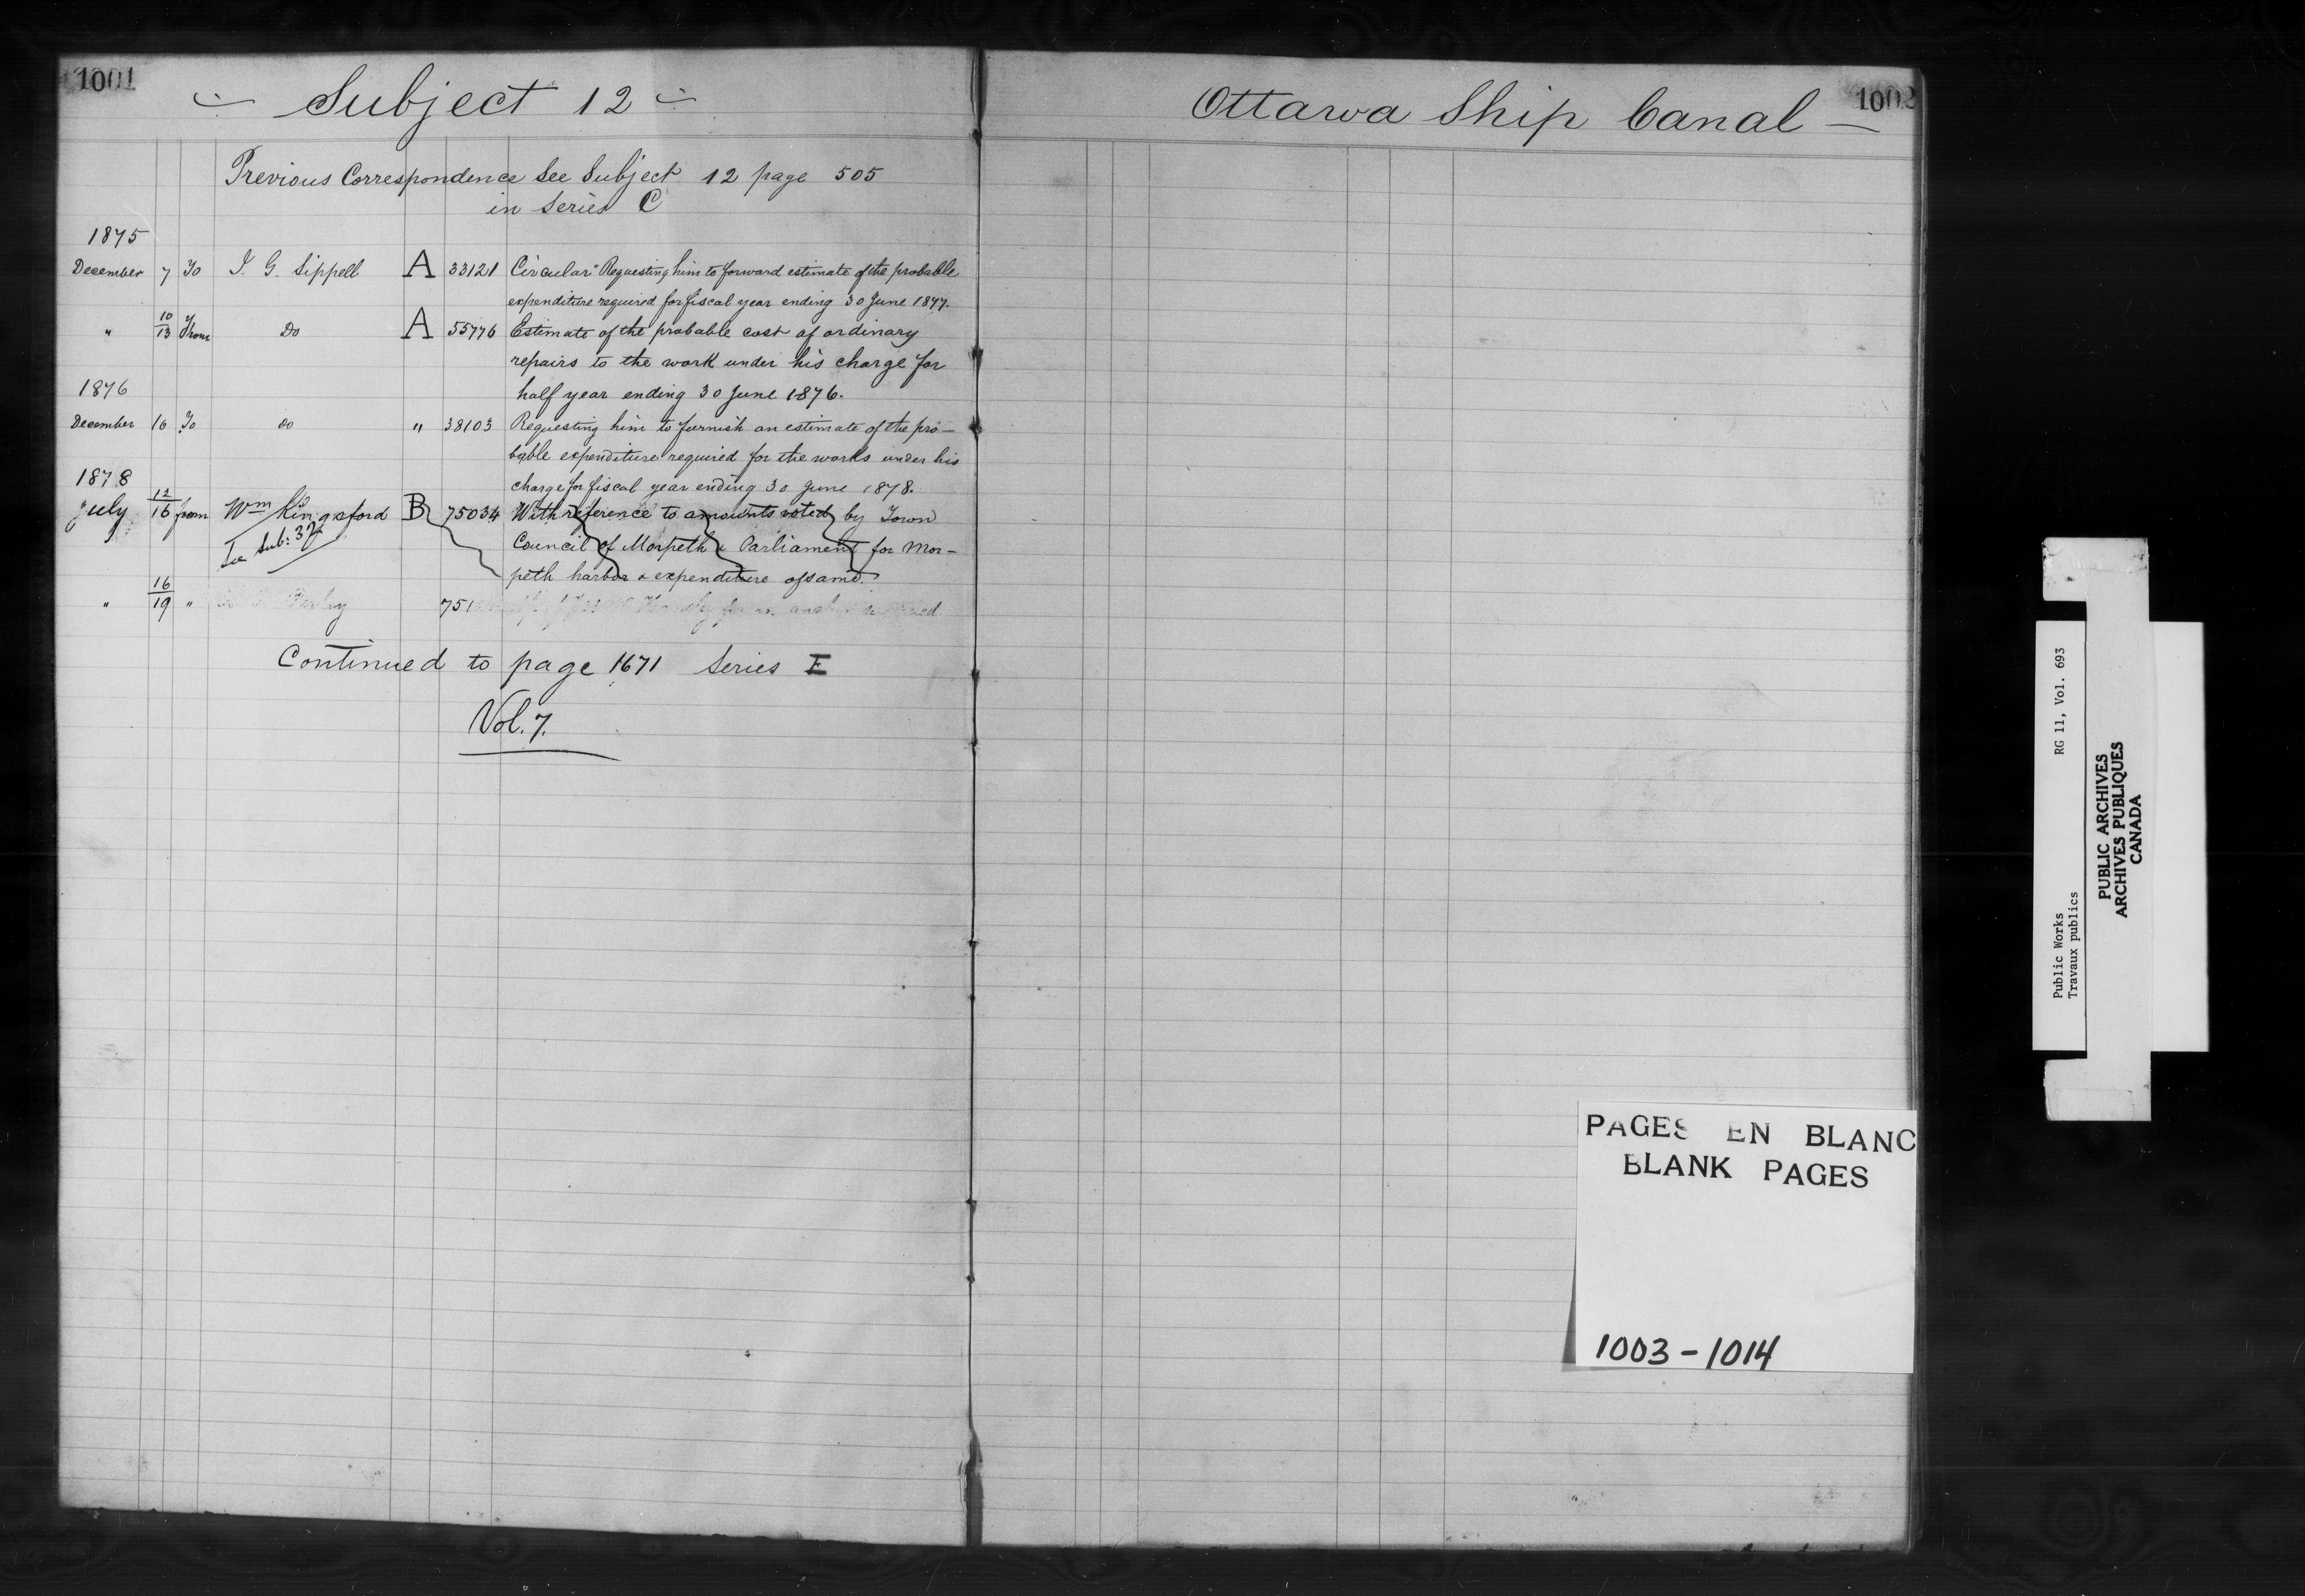 1001
Subject 12
Previous Correspondence See Subject 12 page 505
in Series C
1875
December 7 To J. G. Sippell A 33121 Circular Requesting him to forward estimate of the probable
expenditure required for fiscal year ending 30 June 1877.
" 10/13 From Do A 55776 Estimate of the probable cost of ordinary
repairs to the work under his charge for
half year ending 30 June 1876.
1876
December 16 To do " 38103 Requesting him to furnish an estimate of the pro-
bable expenditure required for the works under his
charge for fiscal year ending 30 June 1878.
1878
July 12/16 from Wm Kingsford B 75034 With reference to amounts voted by Town
Council of Morpeth & Parliament for Mor-
To Sub: 37
peth harbor & expenditure of same.
" 16/19 " Perley 751
Continued to page 1671 Series E
Vol. 7.
Ottawa Ship Canal
1002
PAGES EN BLANC
BLANK PAGES
1003-1014
Public Works RG 11, Vol. 693
Travaux publics
PUBLIC ARCHIVES
ARCHIVES PUBLIQUES
CANADA